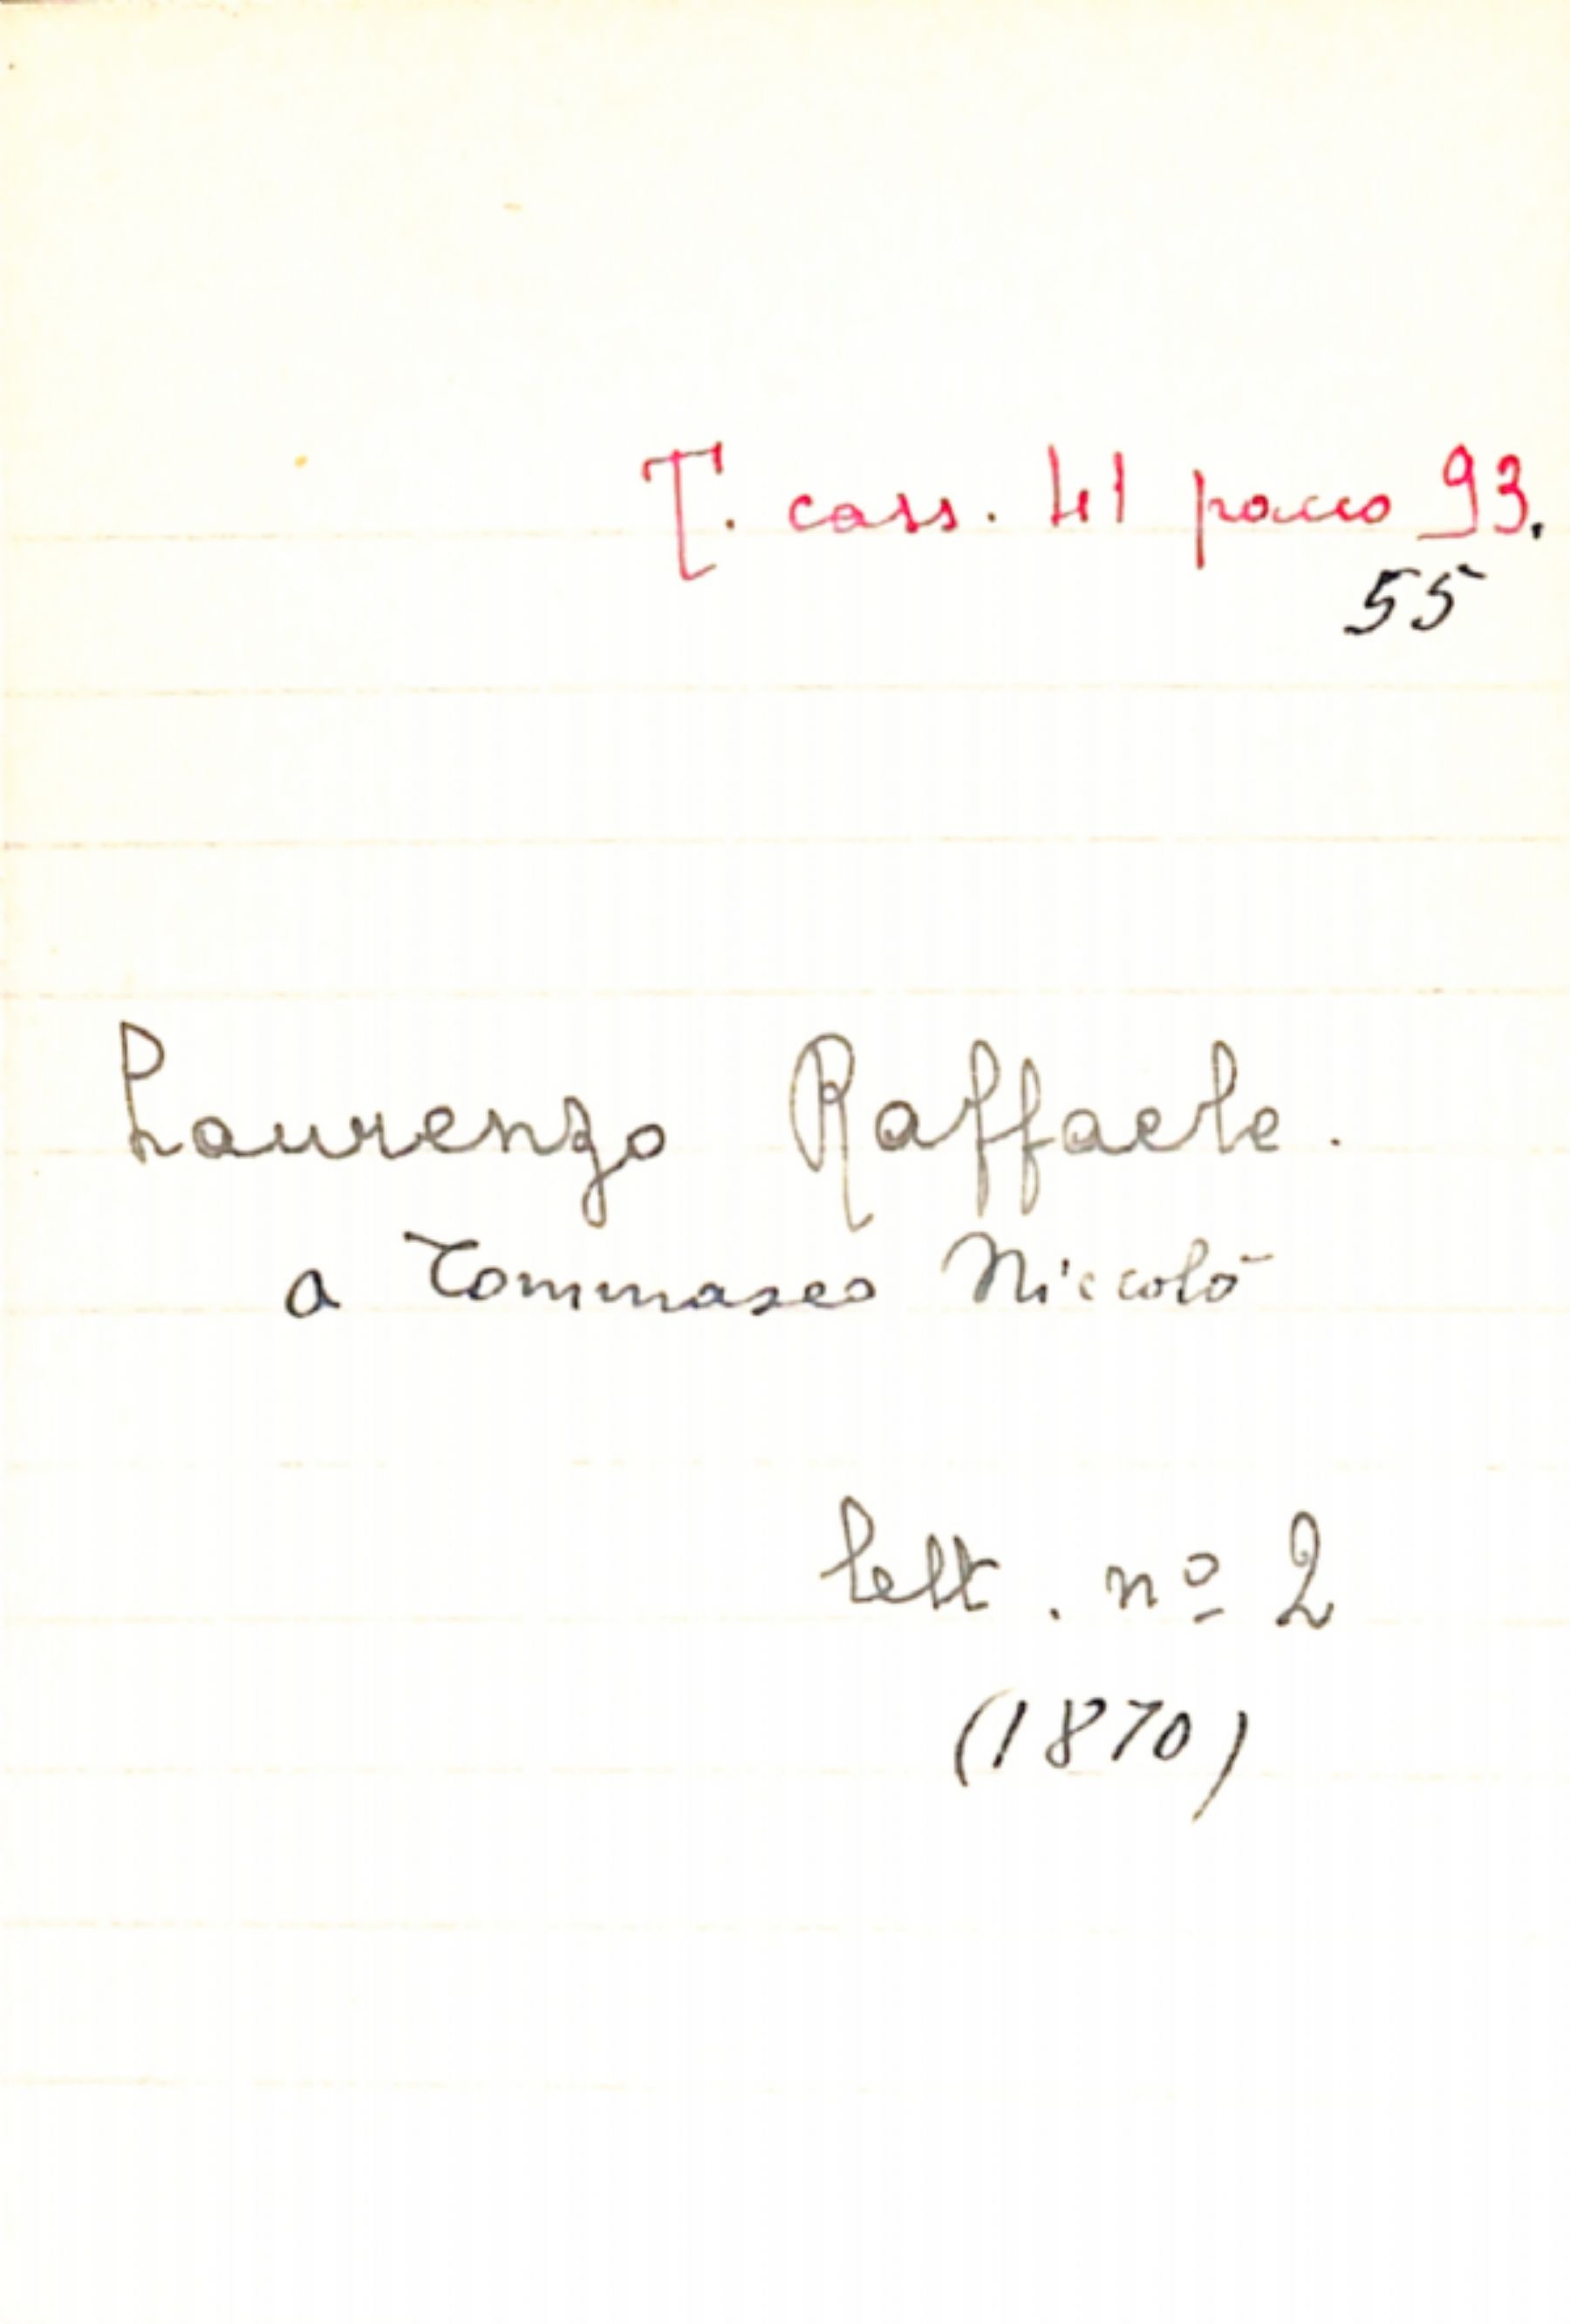 T. cass. 41 pacco 93.
55
Laurenzo Raffaele.
a Tommaseo Niccolò
lett. nº 2
(1870)